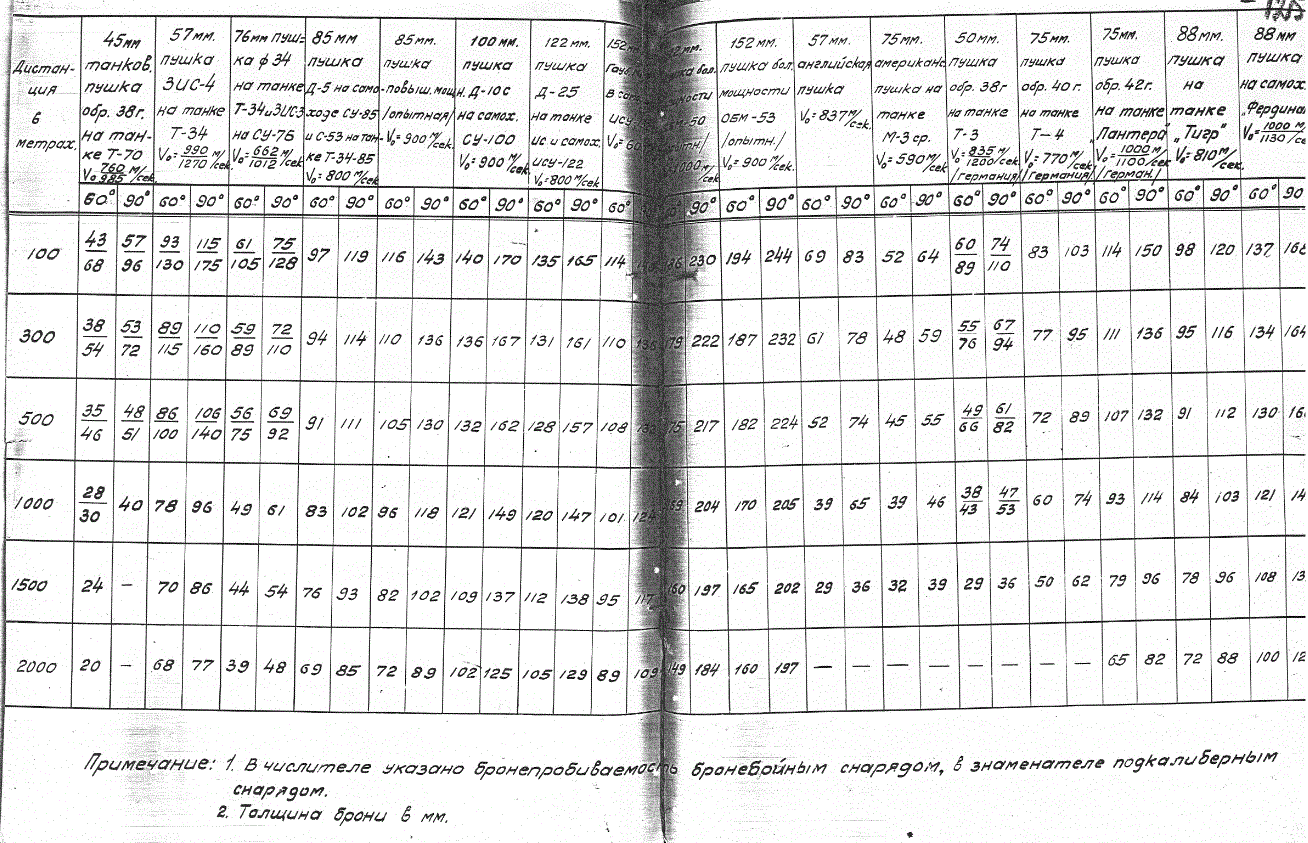 Дистанция в метрах. | 45мм танков. пушка обр. 38г. на танке Т-70 V₀ 760/985 м/сек. | 57мм. пушка ЗИС-4 на танке Т-34 V₀=990/1270 м/сек. | 76мм пушка ф34 на танке Т-34 и ЗИС-3 на СУ-76 V₀=662/1012 м/сек. | 85мм пушка Д-5 на самоходе СУ-85 и С-53 на танке Т-34-85 V₀=800 м/сек | 85мм. пушка повыш. мощн. /опытная/ V₀=900 м/сек. | 100мм. пушка Д-10с на самох. СУ-100 V₀=900 м/сек. | 122мм. пушка Д-25 на танке ИС и самох. ИСУ-122 V₀=800 м/сек | 152 | мм. бол. мощности | 152мм. пушка бол. мощности ОБМ-53 /опытн./ V₀=900 м/сек. | 57мм. английская пушка V₀=837 м/сек. | 75мм. американс. пушка на танке М-3 ср. V₀=590 м/сек | 50мм. пушка обр. 38г на танке Т-3 V₀=835/1200 м/сек /германия/ | 75мм. пушка обр. 40г. на танке Т-4 V₀=770 м/сек /германия/ | 75мм. пушка обр. 42г. на танке „Пантера" V₀=1000/1100 м/сек /герман./ | 88мм. пушка на танке „Тигр" V₀=810 м/сек. | 88мм пушка на самох. „Фердина V₀=1000/1130 м/сек.
60° 90° 60° 90° 60° 90° 60° 90° 60° 90° 60° 90° 60° 90° 60° 90° 60° 90° 60° 90° 60° 90° 60° 90° 60° 90° 60° 90° 60° 90° 60° 90
100 43/68 57/96 93/130 115/175 61/105 75/128 97 119 116 143 140 170 135 165 114 230 194 244 69 83 52 64 60/89 74/110 83 103 114 150 98 120 137
300 38/54 53/72 89/115 110/160 59/89 72/110 94 114 110 136 136 167 131 161 110 136 179 222 187 232 61 78 48 59 55/76 67/94 77 95 111 136 95 116 134 164
500 35/46 48/51 86/100 106/140 56/75 69/92 91 111 105 130 132 162 128 157 108 217 182 224 52 74 45 55 49/66 61/82 72 89 107 132 91 112 130
1000 28/30 40 78 96 49 61 83 102 96 118 121 149 120 147 101 124 169 204 170 205 39 65 39 46 38/43 47/53 60 74 93 114 84 103 121
1500 24 – 70 86 44 54 76 93 82 102 109 137 112 138 95 117 160 197 165 202 29 36 32 39 29 36 50 62 79 96 78 96 108
2000 20 – 68 77 39 48 69 85 72 89 102 125 105 129 89 109 149 184 160 197 – – – – – – – – 65 82 72 88 100
Примечание: 1. В числителе указано бронепробиваемость бронебойным снарядом, в знаменателе подкалиберным
снарядом.
2. Толщина брони в мм.